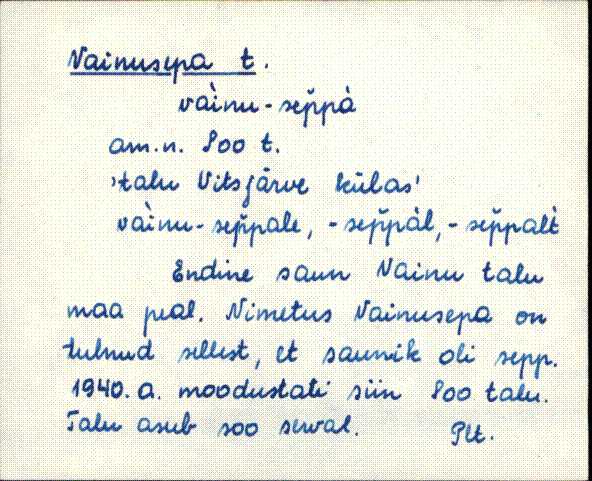 Vainusepa t.
vàinu-sep̆pà
am.n. Soo t.
'talu Vitsjärve külas'
vàinu-sep̆pale, -sep̆pàl, -sep̆palt
Endine saun Vainu talu
maa peal. Nimetus Vainusepa on
tulnud sellest, et saunik oli sepp.
1940. a. moodustati siin Soo talu.
Talu asub soo serval. Plt.